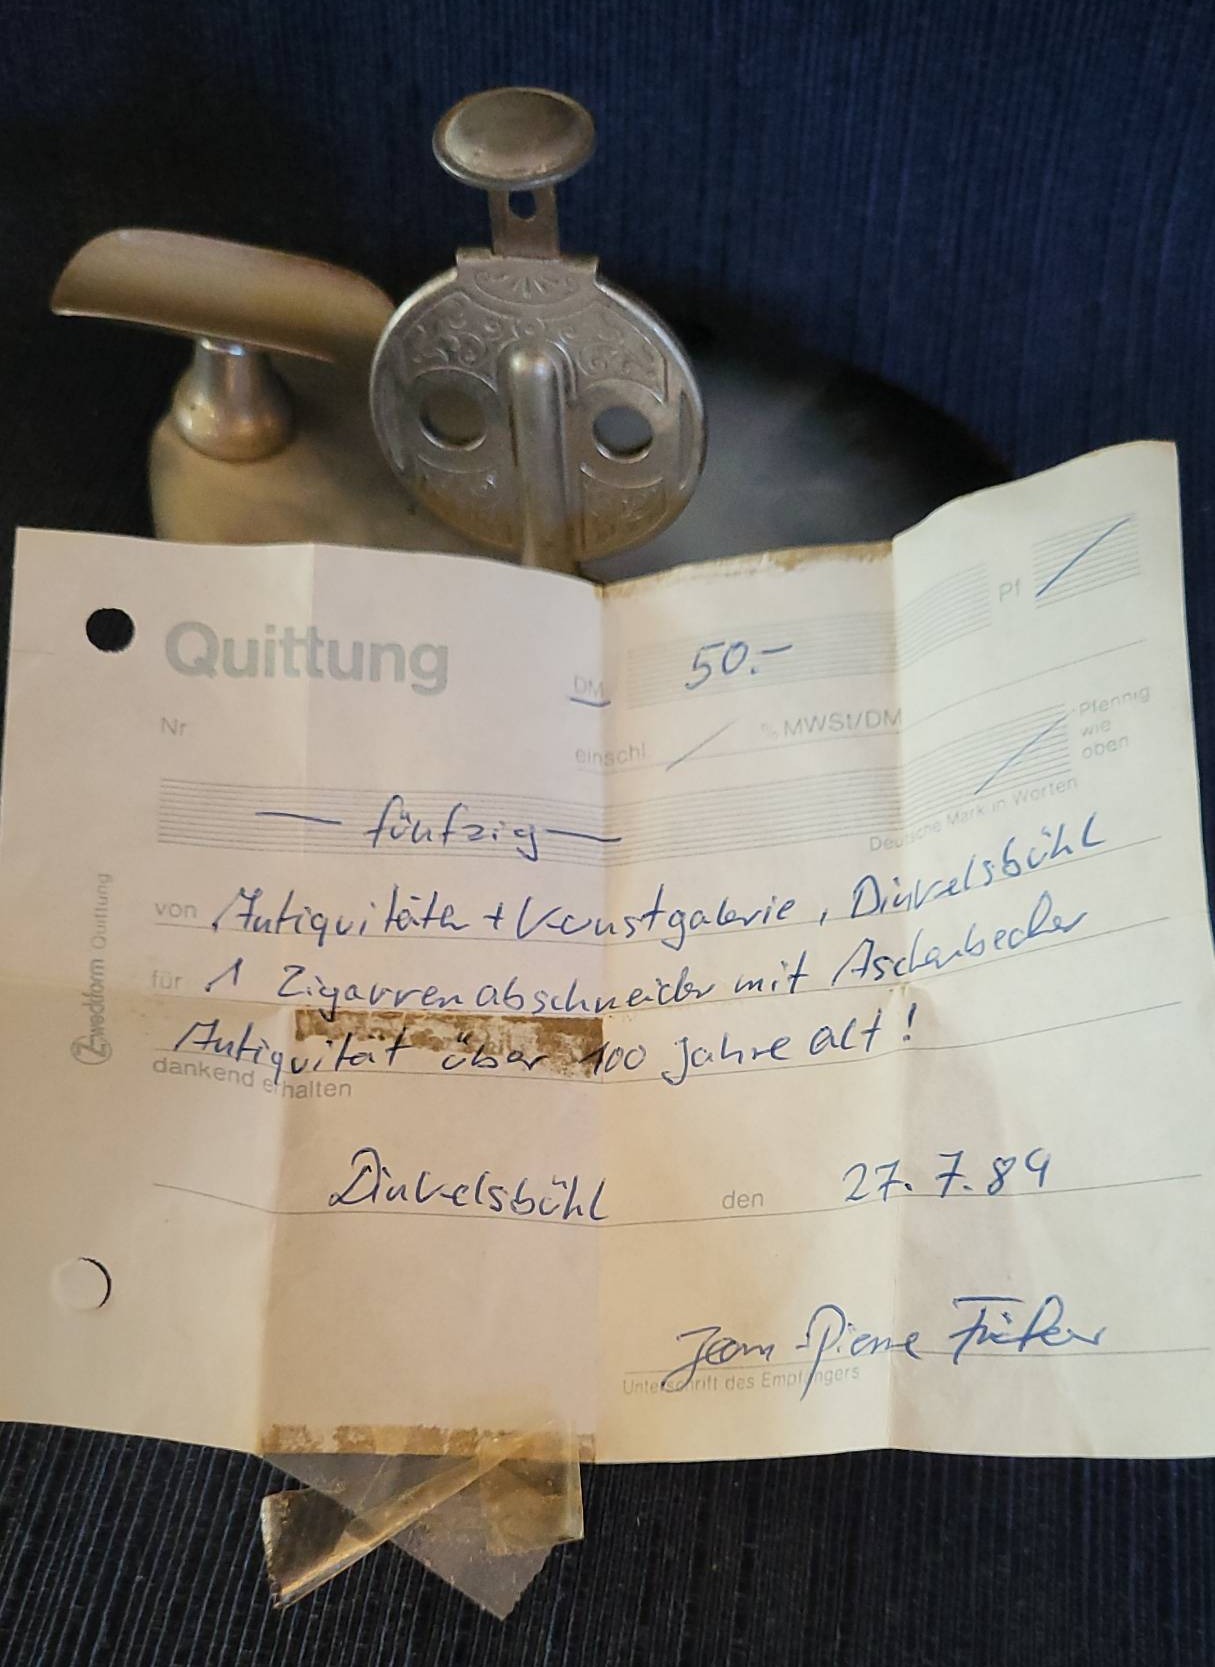 Quittung
DM 50.- Pf
Nr
einschl. % MWSt/DM
Pfennig
wie
oben
fünfzig
Deutsche Mark in Worten
von Antiquitäten + Kunstgalerie, Dinkelsbühl
für 1 Zigarrenabschneider mit Aschenbecher
Antiquität über 100 Jahre alt!
dankend erhalten
Dinkelsbühl den 27.7.89
Jean-Pierre
Unterschrift des Empfängers
Zweckform Quittung